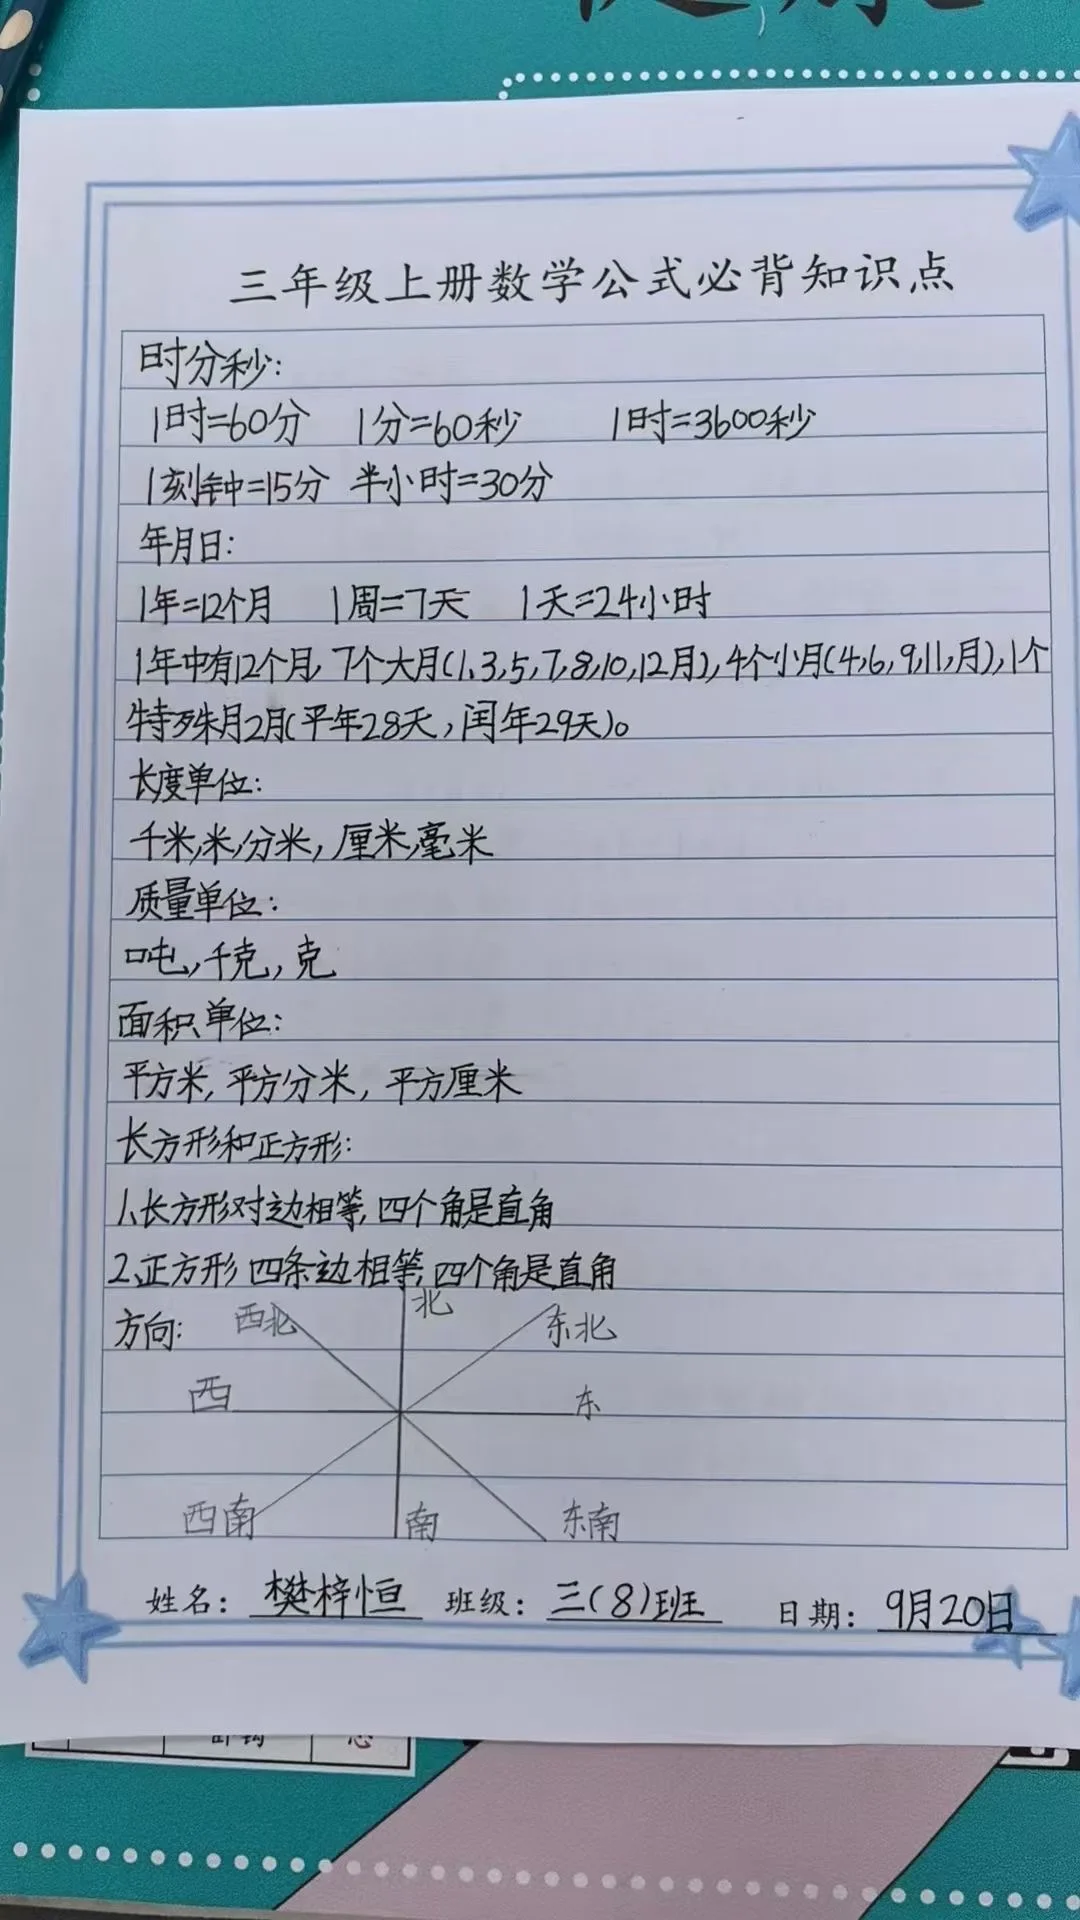 三年级上册数学公式必背知识点
时分秒:
1时=60分 1分=60秒 1时=3600秒
1刻钟=15分 半小时=30分
年月日:
1年=12个月 1周=7天 1天=24小时
1年中有12个月,7个大月(1、3,5,7,8,10,12月),4个小月(4,6,9,11,月),1个
特殊月2月(平年28天,闰年29天)。
长度单位:
千米,米,分米,厘米,毫米
质量单位:
吨,千克,克
面积单位:
平方米,平方分米,平方厘米
长方形和正方形:
1、长方形对边相等,四个角是直角
2、正方形四条边相等,四个角是直角
方向: 西北 北 东北
西 东
西南 南 东南
姓名: 樊梓恒 班级: 三(8)班 日期: 9月20日